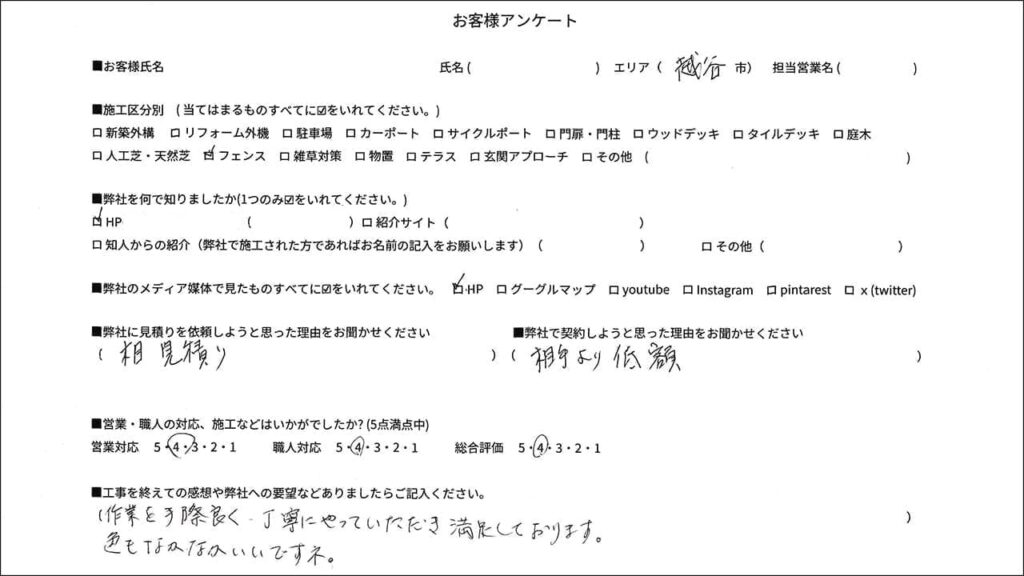 お客様アンケート
■お客様氏名 氏名 ( ) エリア ( 越谷 市) 担当営業名 ( )
■施工区分別 ( 当てはまるものすべてに☑をいれてください。)
□ 新築外構 □ リフォーム外機 □ 駐車場 □ カーポート □ サイクルポート □ 門扉・門柱 □ ウッドデッキ □ タイルデッキ □ 庭木
□ 人工芝・天然芝 ☑ フェンス □ 雑草対策 □ 物置 □ テラス □ 玄関アプローチ □ その他 ( )
■弊社を何で知りましたか(1つのみ☑をいれてください。)
☑ HP ( ) □ 紹介サイト ( )
□ 知人からの紹介 (弊社で施工された方であればお名前の記入をお願いします) ( ) □ その他 ( )
■弊社のメディア媒体で見たものすべてに☑をいれてください。 ☑ HP □ グーグルマップ □ youtube □ Instagram □ pintarest □ x (twitter)
■弊社に見積りを依頼しようと思った理由をお聞かせください ■弊社で契約しようと思った理由をお聞かせください
( 相見積り ) ( 相手より低額 )
■営業・職人の対応、施工などはいかがでしたか? (5点満点中)
営業対応 5・4・3・2・1 職人対応 5・4・3・2・1 総合評価 5・4・3・2・1
■工事を終えての感想や弊社への要望などありましたらご記入ください。
(作業を手際良く、丁寧にやっていただき満足しております。 )
色もなかなかいいですネ。